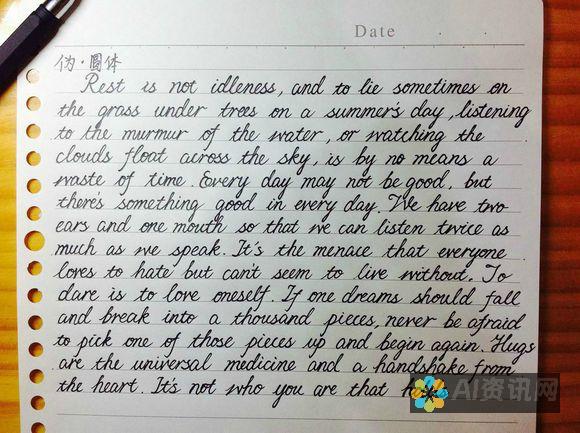 Date
伪·圆体
Rest is not idleness, and to lie sometimes on
the grass under trees on a summer's day, listening
to the murmur of the water, or watching the
clouds float across the sky, is by no means a
waste of time. Every day may not be good, but
there's something good in every day. We have two
ears and one mouth so that we can listen twice as
much as we speak. It's the menace that everyone
loves to hate but can't seem to live without. To
dare is to love oneself. If one dreams should fall
and break into a thousand pieces, never be afraid
to pick one of those pieces up and begin again. Hugs
are the universal medicine and a handshake from
the heart. It's not who you are that
AI资讯网